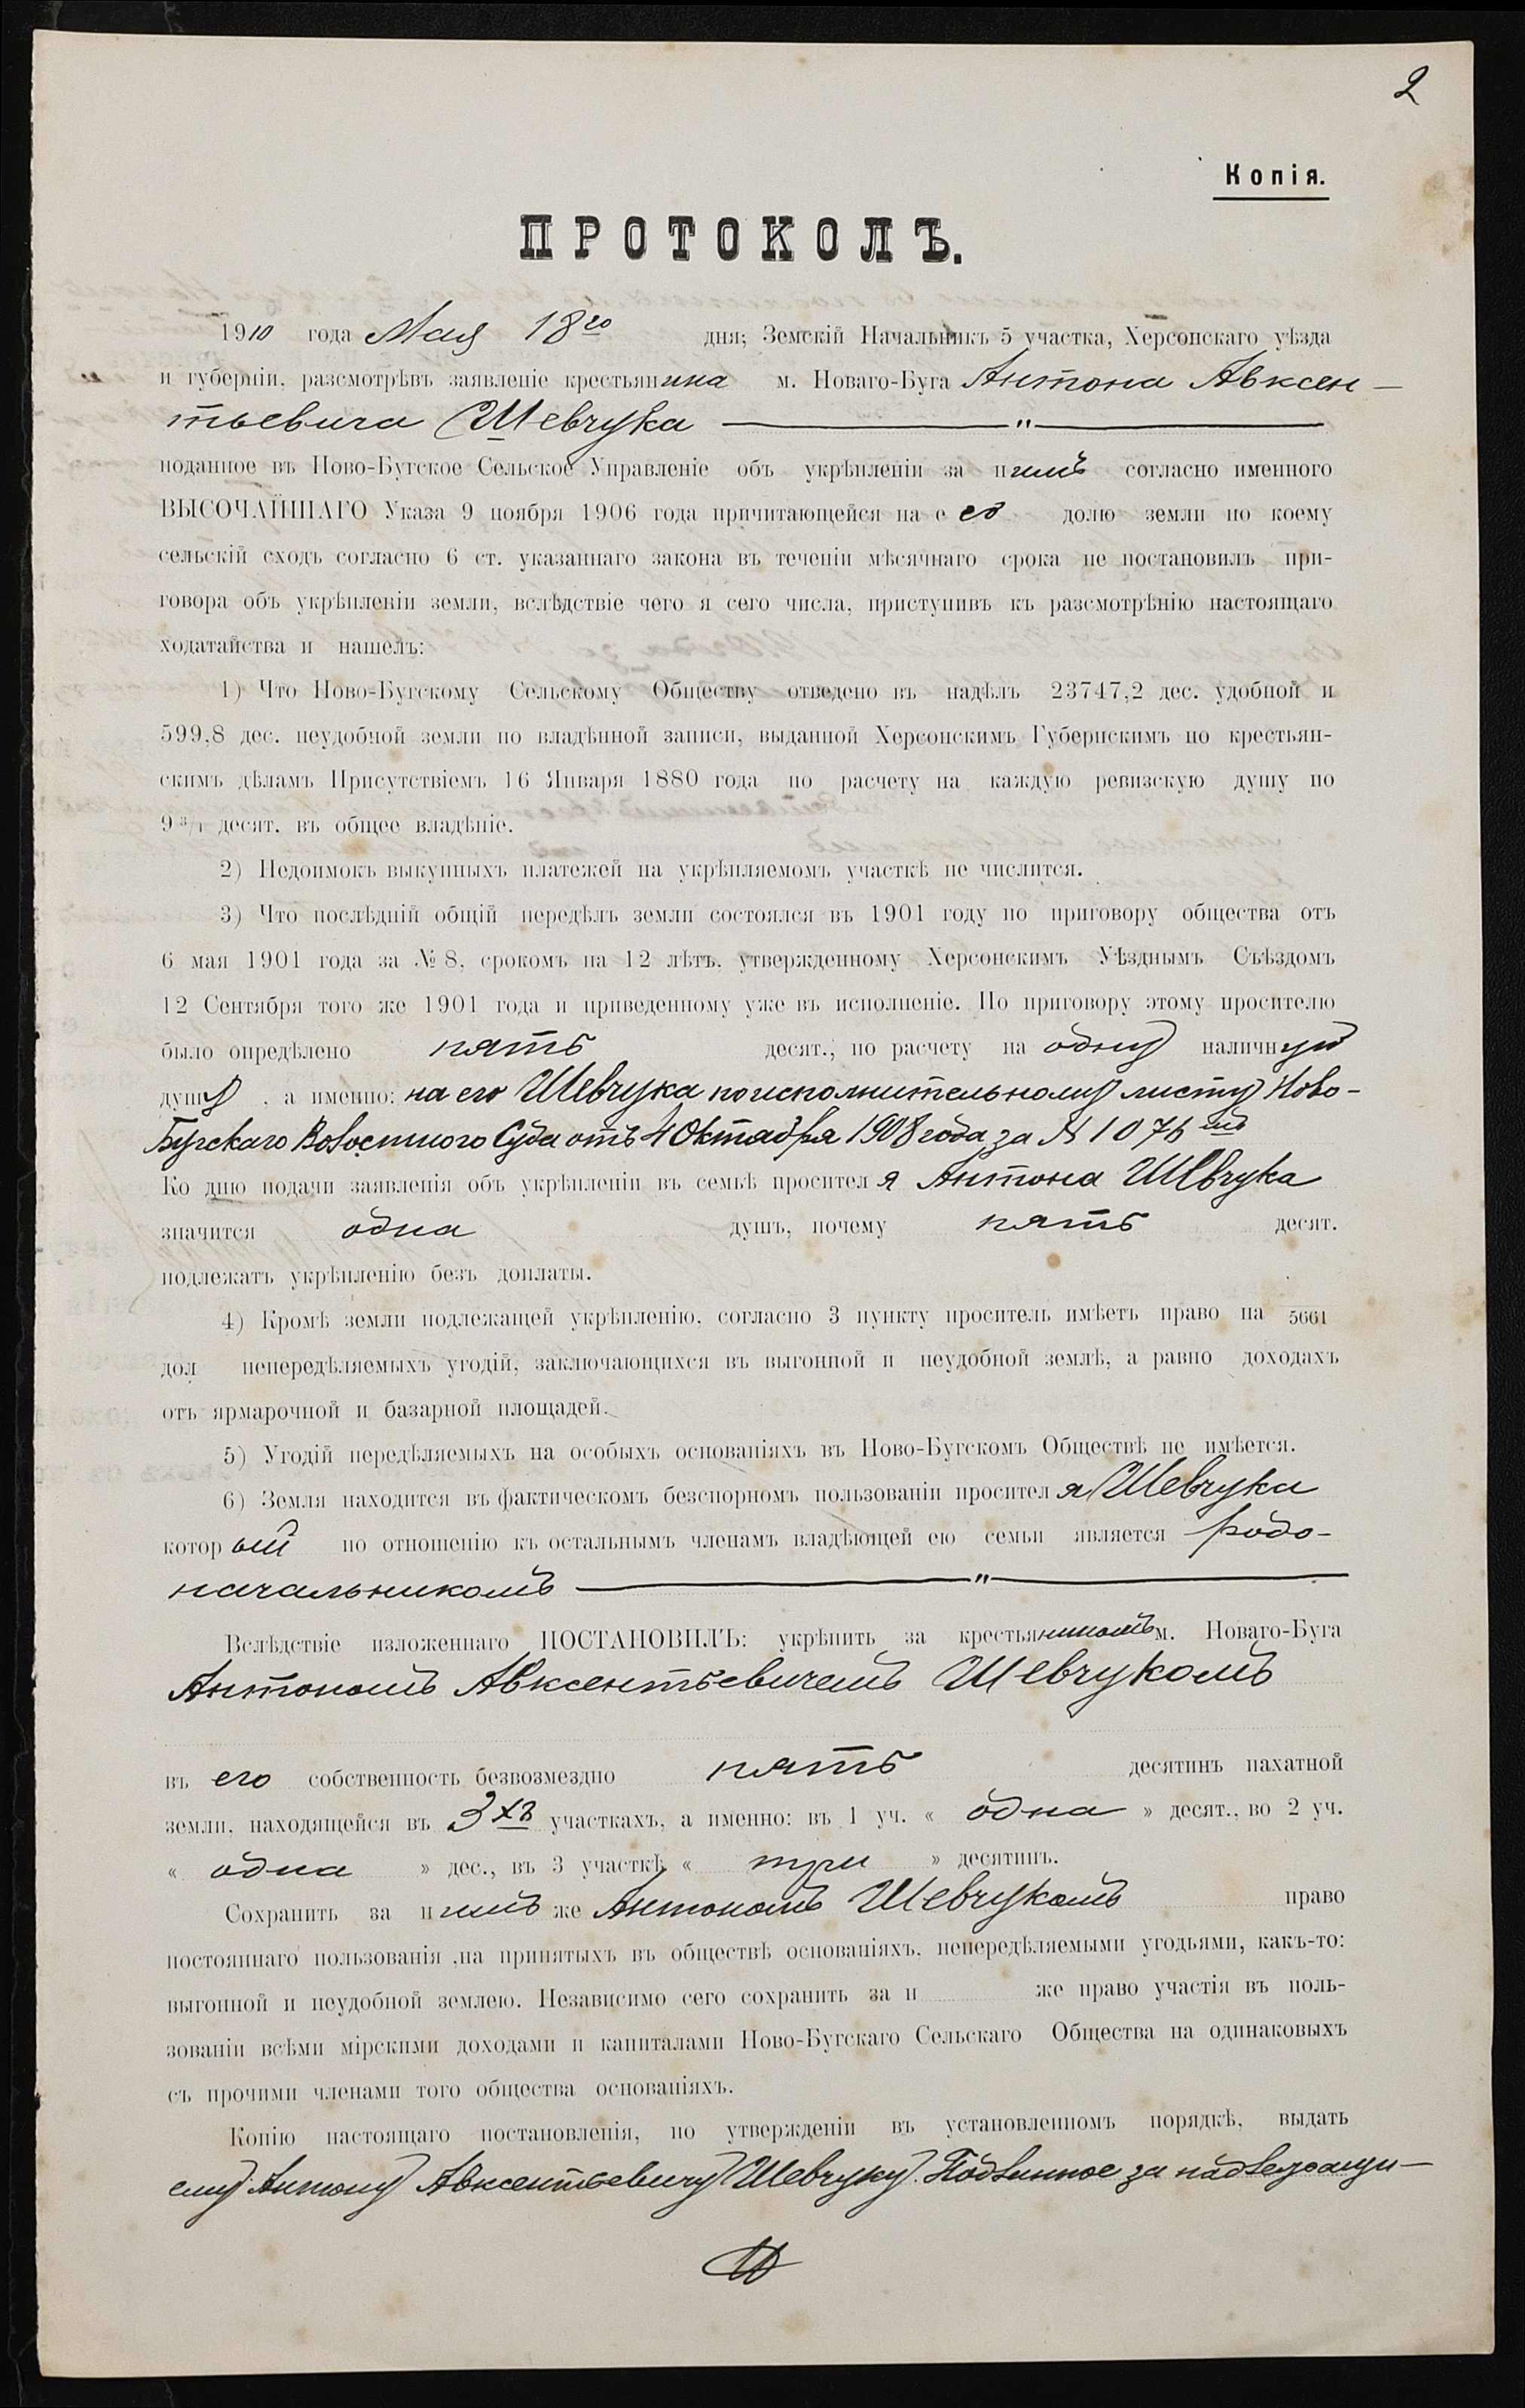 2
Копія.
ПРОТОКОЛЪ.
1910 года Мая 18го дня; Земскій Начальникъ 5 участка, Херсонскаго уѣзда
и губерніи, разсмотрѣвъ заявленіе крестьянина м. Новаго-Буга Антона Авксен-
тьевича Шевчука — " —
поданное въ Ново-Бугское Сельское Управленіе объ укрѣпленіи за нимъ согласно именного
ВЫСОЧАЙШАГО Указа 9 ноября 1906 года причитающейся на е его долю земли по коему
сельскій сходъ согласно 6 ст. указаннаго закона въ теченіи мѣсячнаго срока не постановилъ при-
говора объ укрѣпленіи земли, вслѣдствіе чего я сего числа, приступивъ къ разсмотрѣнію настоящаго
ходатайства и нашелъ:
1) Что Ново-Бугскому Сельскому Обществу отведено въ надѣлъ 23747,2 дес. удобной и
599,8 дес. неудобной земли по владѣнной записи, выданной Херсонскимъ Губернскимъ по крестьян-
скимъ дѣламъ Присутствіемъ 16 Января 1880 года по расчету на каждую ревизскую душу по
9 3/4 десят. въ общее владѣніе.
2) Недоимокъ выкупныхъ платежей на укрѣпляемомъ участкѣ не числится.
3) Что послѣдній общій передѣлъ земли состоялся въ 1901 году по приговору общества отъ
6 мая 1901 года за № 8, срокомъ на 12 лѣтъ, утвержденному Херсонскимъ Уѣзднымъ Съѣздомъ
12 Сентября того же 1901 года и приведенному уже въ исполненіе. По приговору этому просителю
было опредѣлено пять десят., по расчету на одну наличную
душу , а именно: на его Шевчука по исполнительному листу Ново-
Бугскаго Волостного Суда отъ 4 Октября 1908 года за №
Ко дню подачи заявленія объ укрѣпленіи въ семьѣ просителя Антона Шевчука
значится одна душъ, почему пять десят.
подлежатъ укрѣпленію безъ доплаты.
4) Кромѣ земли подлежащей укрѣпленію, согласно 3 пункту проситель имѣетъ право на 5661
дол непередѣляемыхъ угодій, заключающихся въ выгонной и неудобной землѣ, а равно доходахъ
отъ ярмарочной и базарной площадей.
5) Угодій передѣляемыхъ на особыхъ основаніяхъ въ Ново-Бугскомъ Обществѣ не имѣется.
6) Земля находится въ фактическомъ безспорномъ пользованіи просителя Шевчука
который по отношенію къ остальнымъ членамъ владѣющей ею семьи является родо-
начальникомъ — " —
Вслѣдствіе изложеннаго ПОСТАНОВИЛЪ: укрѣпить за крестьяниномъ м. Новаго-Буга
Антономъ Авксентьевичемъ Шевчукомъ
въ его собственность безвозмездно пять десятинъ пахатной
земли, находящейся въ 3хъ участкахъ, а именно: въ 1 уч. « одна » десят., во 2 уч.
« одна » дес., въ 3 участкѣ « три » десятинъ.
Сохранить за нимъ же Антономъ Шевчукомъ право
постояннаго пользованія ,на принятыхъ въ обществѣ основаніяхъ, непередѣляемыми угодьями, какъ-то:
выгонной и неудобной землею. Независимо сего сохранить за н же право участія въ поль-
зованіи всѣми мірскими доходами и капиталами Ново-Бугскаго Сельскаго Общества на одинаковыхъ
съ прочими членами того общества основаніяхъ.
Копію настоящаго постановленія, по утвержденіи въ установленномъ порядкѣ, выдать
ему Антону Авксентьевичу Шевчуку. Подлинное за надлежащи-